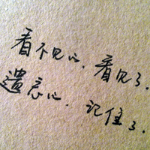 看不见心.看见了.
遗忘心.记住了.